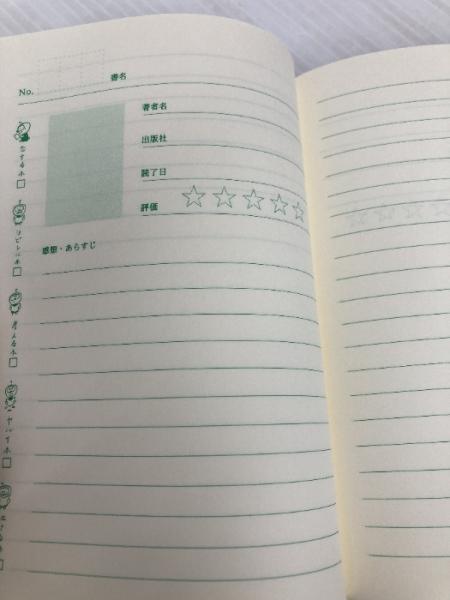 No.
書名
著者名
出版社
読了日
評価
感想・あらすじ
恋する本
シビレル本
考える本
ヤバイ本